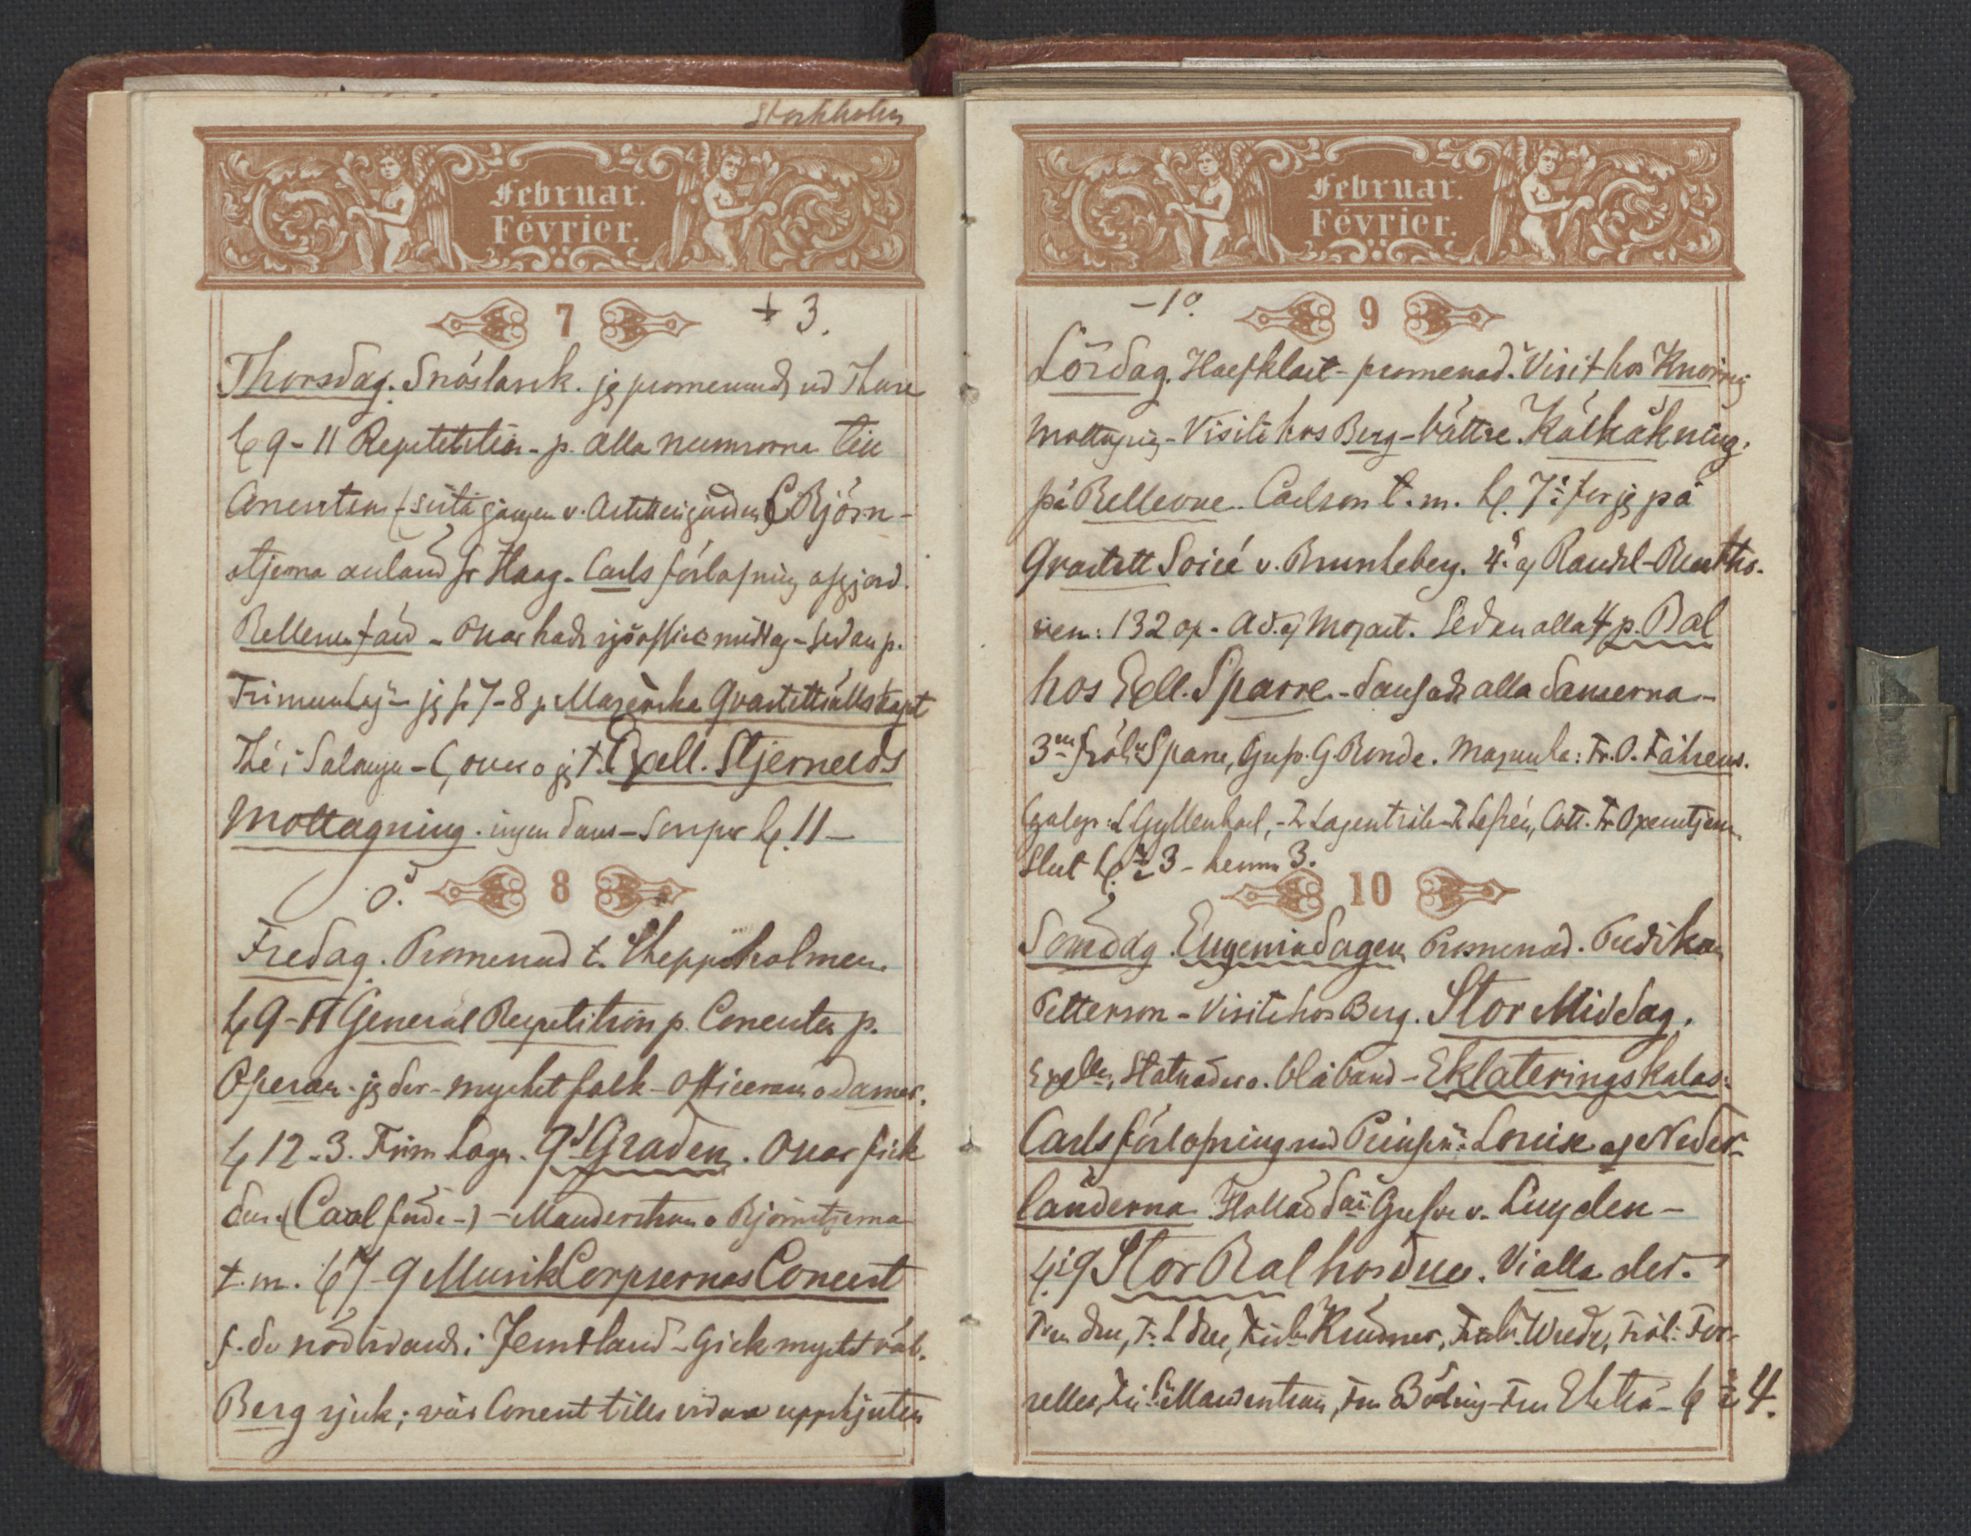 Stockholm
Februar.
Février.
7 + 3.
Thorsdag. Snöslask. jg promenad
kl 9-11 Repetition - p. alla numrorna till
Concerten (sista gången v. C Björn-
stjerna anländ fr Haag - Carls förlofning afgjord.
Bellevuefärd - Oscar hade middag - sedan p.
jg kl 7-8 p. Mazerska Qvartettsällskapet
Thé i - C, Oscar o jg t. Exell. Stjernelds
Mottagning. ingen dans - Soupé kl. 11 -
8
0°.
Fredag. Promenad t. Skeppsholmen.
kl 9-11 General Repetition p. Concerten p.
Operan - jg der - mycket folk - officerare o damer.
kl 12-3. Frim Loge. 9d Graden. Oscar fick
den (Carl förde -) - Manderström o Björnstjerna
t. m. kl 7-9 MusikCorpsernas Concert
f. de nödlidande i Jemtland - Gick mycket väl.
Berg sjuk; vår Concert tills vidare uppskjuten
Februar.
Février.
- 1°. 9
Lördag. Halfklart - promenad. Visit hos Knorring
Mottagning - Visite hos Berg - bättre. Kälkåkning.
på Bellevue. Carlson t. m. kl. 7 for jg på
Qvartett Soiré v. Brunkeberg. 4 af Randel - Beetho-
ven: 132 op. - Ad. af Mozart. Sedan alla 4 p. Bal
hos Exell. Sparre. - dansade alla danserna -
3ne Sparre, Grefv. G Bonde. Mazurka: Fr. O. Fåhreus.
Galop: L Gyllenhaal, - Lagenstråle - Lefrén, Cott. Fr Oxenstjerna
Slut kl. ½ 3 - hemma 3.
10
Söndag. Eugeniadagen Promenad. Predikan
Petterson - Visite hos Berg. Stor Middag.
Exeller, Statsråder o. blå band - Eklateringskalas:
Carls förlofning med Prinsess: Louise af Neder-
länderna Holländ Grefve v. Zuylen -
kl. 9 Stor Bal hos Due. Vi alla der.
Fru Due, Fr. L Due, Krüdner, Wrede, Fröl: For-
selles, Manderström, Fru Fru Ekstrå - kl ½ 4.